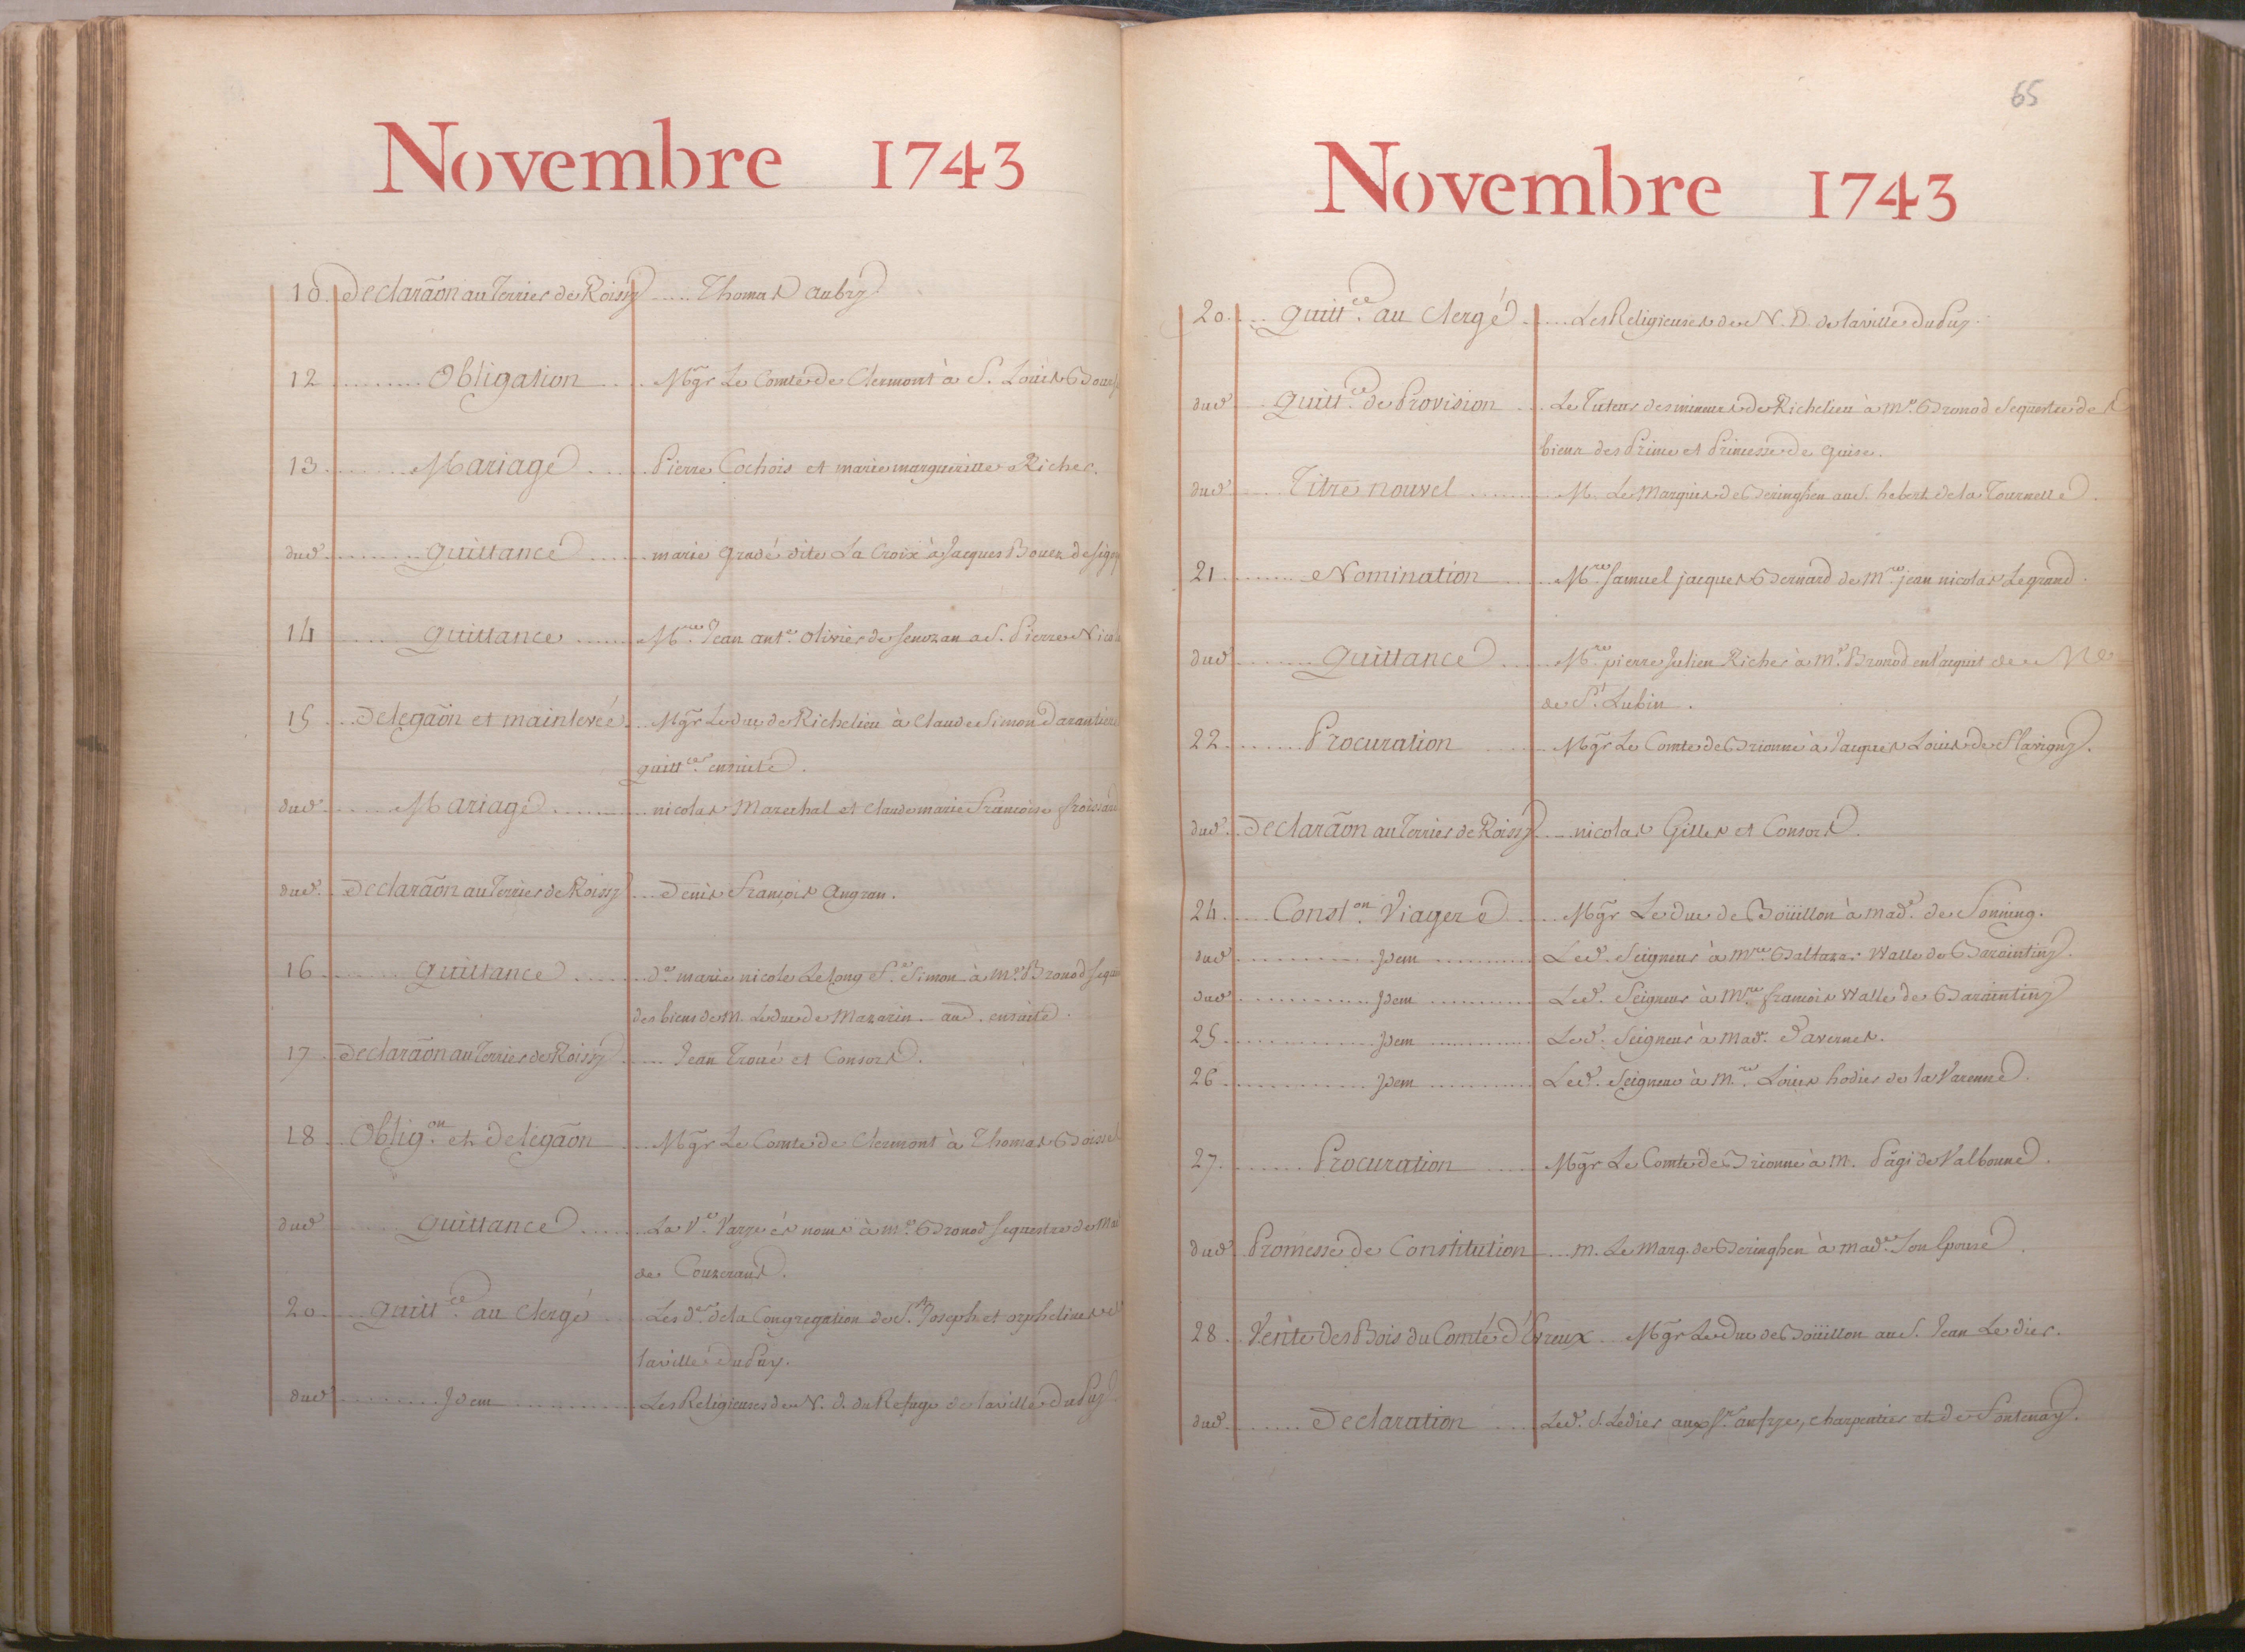 Novembre 1743
10 Declaraõn au Terrier de Roissy Thomas Aubry
12 Obligation Mgr Le Comte de Clermont à S. Louis
13 Mariage Pierre Cochois et marie margueritte Richer.
dud. quittance marie gradé dite La Croix à Jacques Bouer
14 quittance Mre Jean ant.e Olivier de Senozan a S. Pierre
15 Delegaõn et mainlevée Mgr Le duc de Richelieu à Claude Simon
quitt.ces ensuite.
dud. Mariage nicolas Marechal et Claude marie Françoise
dud. Declaraõn au Terrier de Roissy Denis François Angran.
16 Quittance D.e marie nicole Le Long Ve Simon à Me Bronod
des biens de M. Le duc de Mazarin. and. ensuite.
17 Declaraõn au Terrier de Roissy Jean Troué et Consors.
18 Oblig.on et delegaõn Mgr Le Comte de Clermont à Thomas
dud. quittance La Ve. ès noms à Me Bronod sequestre de
de Couzerans.
20 quitt.ce au Clergé Les d.es de la Congregation de St Joseph et orphelines de
la ville du Puy.
dud. Idem Les Religieuses de N. D. du Refuge de la ville du Puy
65
Novembre 1743
20 quitt.ce au Clergé Les Religieuses de N. D. de la ville du Puy.
dud. Quitt.ce de Provision Le Tuteur des mineurs de Richelieu à Me Bronod Sequestre des
biens des Prince et Princesse de guise.
dud. Titre nouvel M. Le Marquis de Beringhen au S. hebert de la Tournelle.
21 Nomination Mre Samuel jacques Bernard de Mre jean nicolas Legrand.
dud. Quittance Mre pierre Julien Richer à Me Bronod en l'acquit de
de St Lubin.
22 Procuration Mgr Le Comte de Brionne à Jacques Louis de Flavigny.
dud. Declaraõn au Terrier de Roissy nicolas Gilles et Consors.
24 Const.on Viagere Mgr Le Duc de Boüillon à mad.e de Sonning.
dud. Idem Led. Seigneur à Mre Baltazar Walle de Baraintiny.
dud. Idem Led. Seigneur à Mre françois Walle de Baraintiny
25 Idem Led. Seigneur à Mad. Davernes.
26 Idem Led. Seigneur à Mre Louis hodier de la Varenne.
27 Procuration Mgr Le Comte de Brionne à M. Pagi de Valbonne.
dud. Promesse de Constitution M. Le Marq. de Beringhen à mad.e Son Epouse.
28 Vente des Bois du Comté d'Evreux Mgr Le Duc de Boüillon au S. Jean Le dier.
dud. Declaration Led. S. Ledier aux Srs charpentier et de Fontenay.